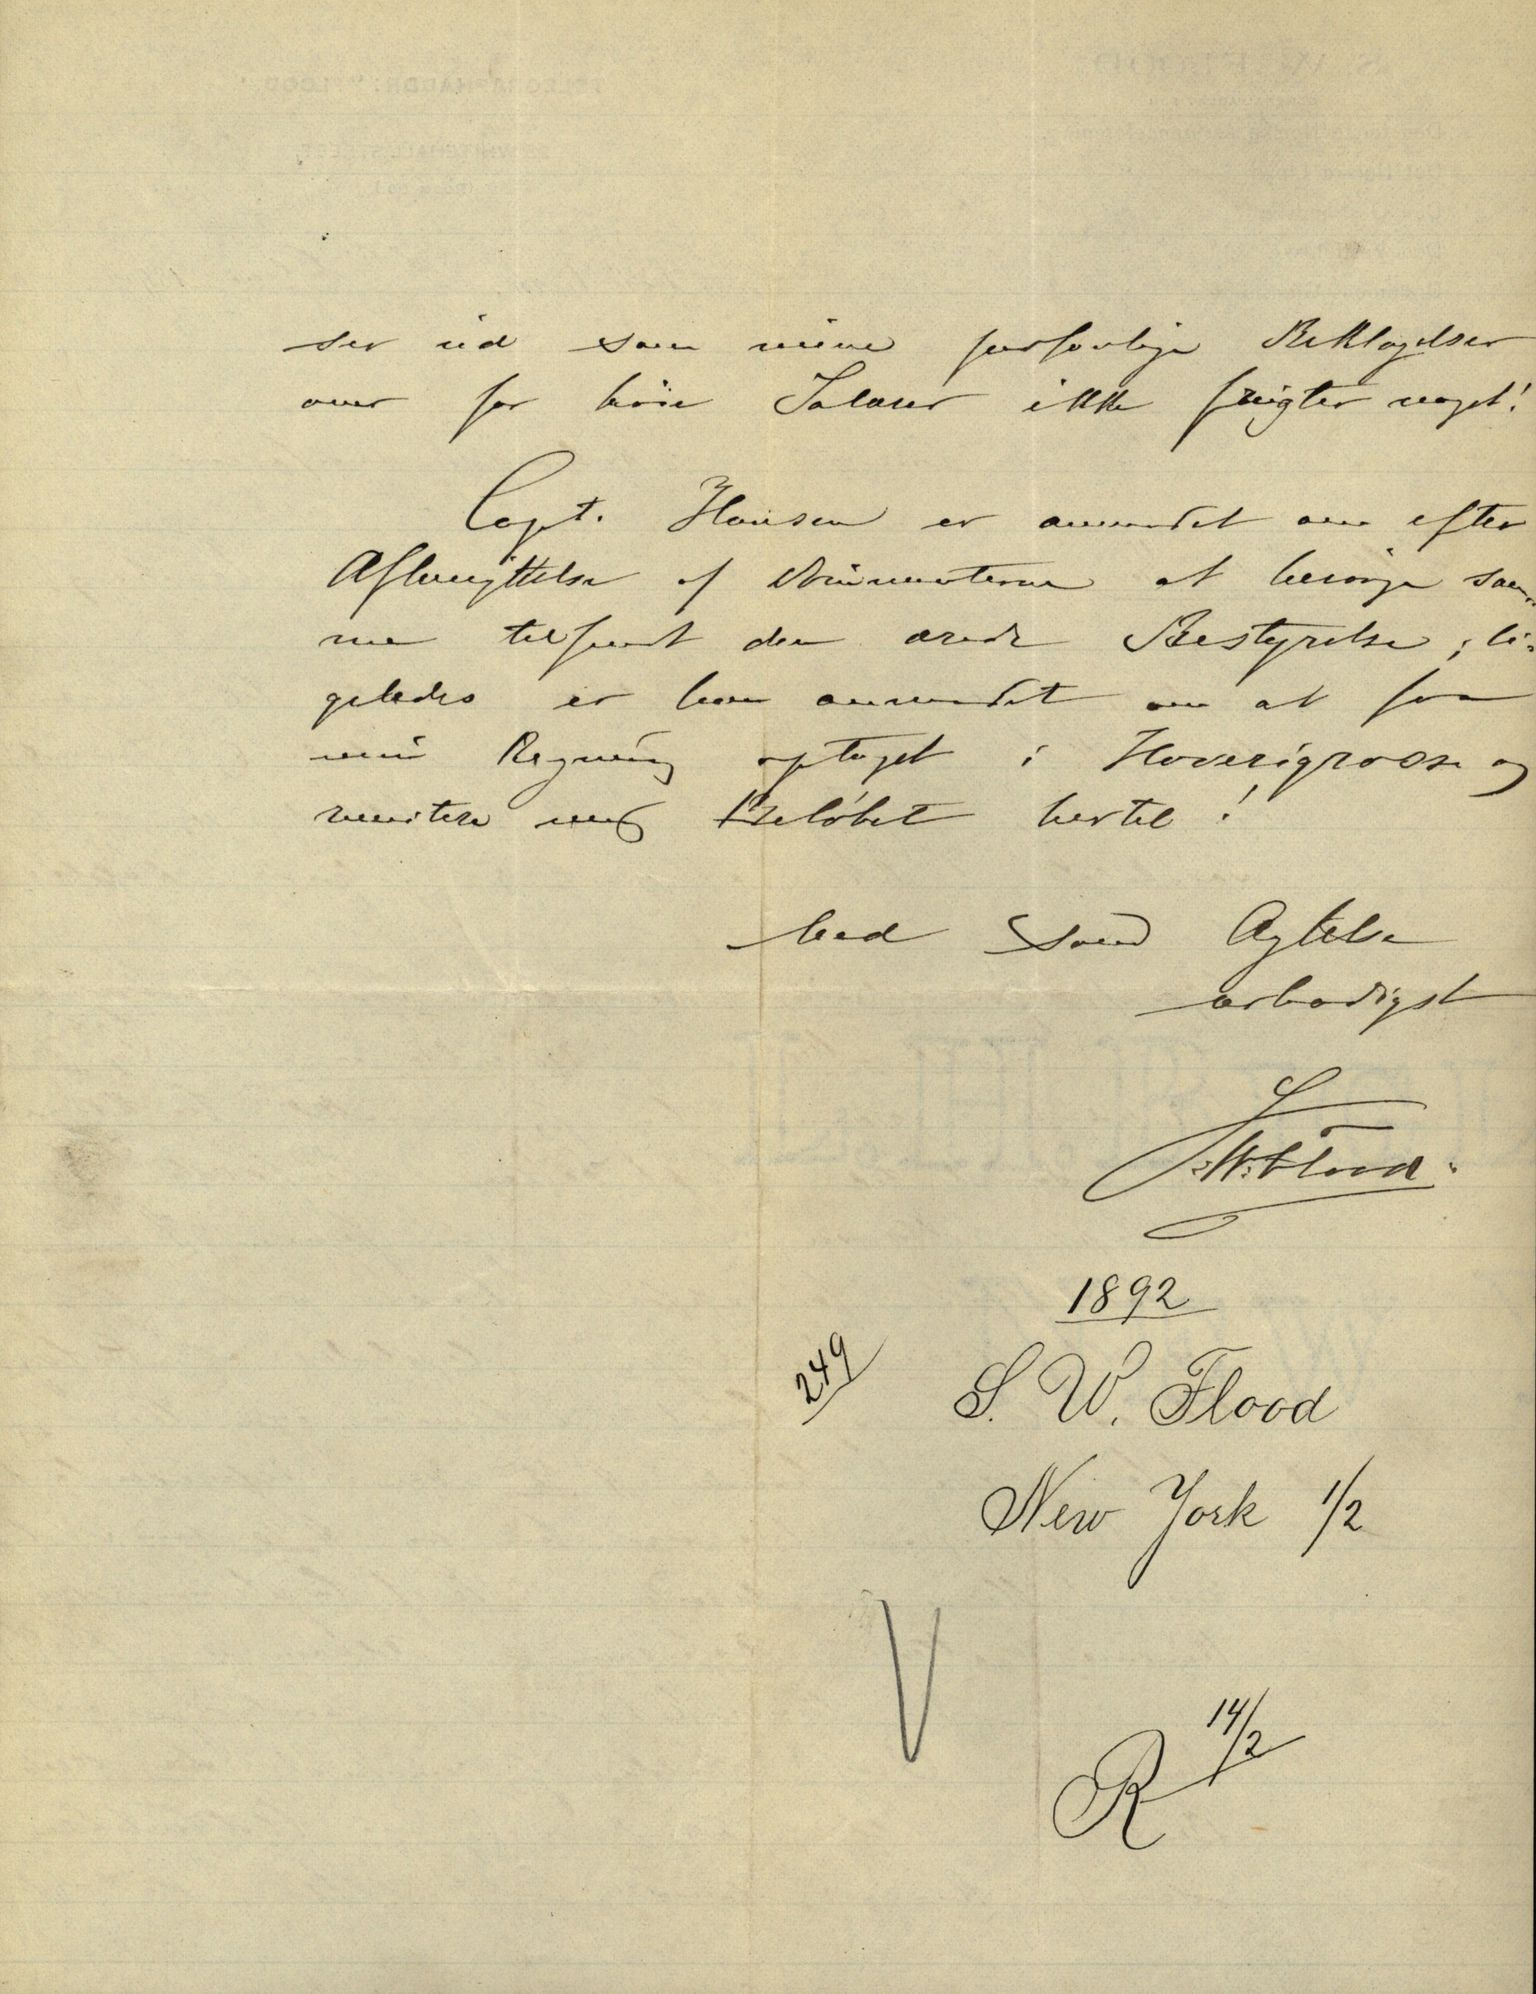 ser ud som mine personlige Beklagelser
over for höie Salærer ikke frugter noget!
Capt. Hansen er anmodet om efter
Afbenyttelse af Dokumenterne at besörge sam-
me tilsendt den ærede Bestyrelse; li-
geledes er han anmodet om at faa
min Regning optaget i Haverigrosse og
remitere mig Belöbet hertil!
Med sand Agtelse
ærbødigst
S. W. Flood.
1892
249
S. W. Flood
New York 1/2
R 14/2